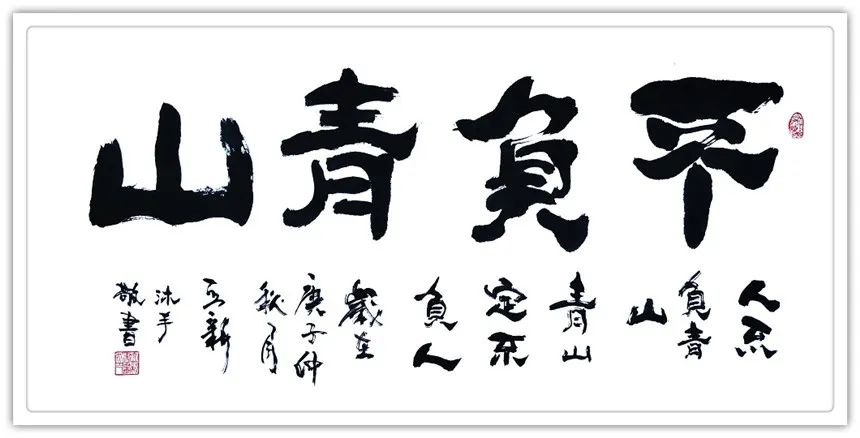 不負青山
人不
負青
山
青山
定不
負人
歲在
庚子仲
秋月
亞新
沐手
敬書